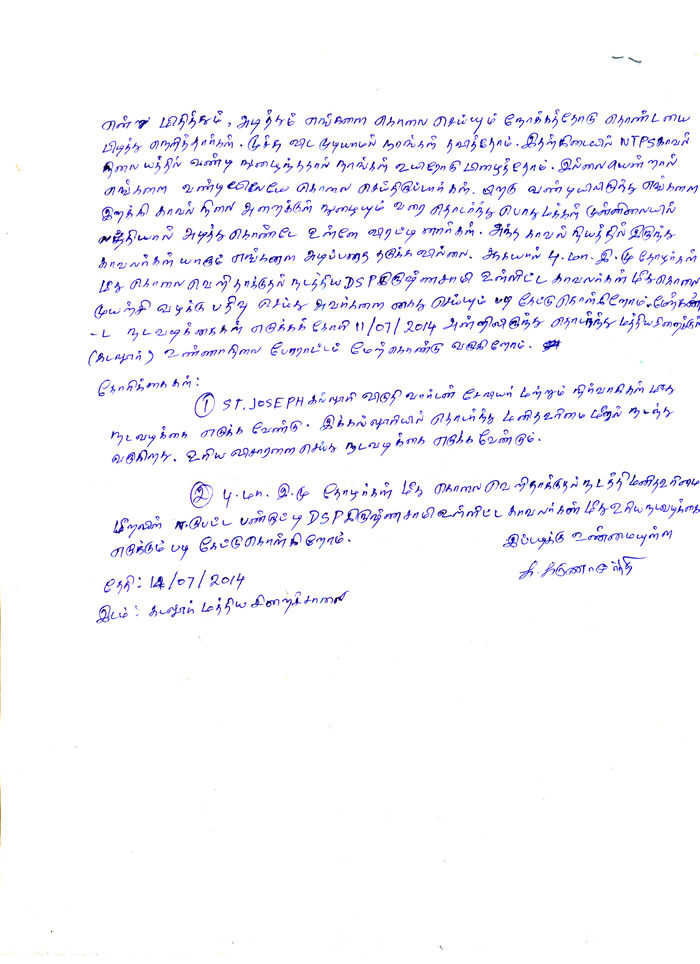 என்று மிதித்தும், அடித்தும் எங்களை கொலை செய்யும் நோக்கத்தோடு தொண்டயை
பிடித்து நெறித்தார்கள். மூச்சு விட முடியாமல் நாங்கள் தவித்தோம். இதற்கிடையில் NTPS காவல்
நிலையத்தில் வண்டி நுழைந்ததால் நாங்கள் உயிரோடு பிழைத்தோம். இல்லை யென்றால்
எங்களை வண்டியிலேயே கொலை செய்திருப்பார்கள். பிறகு வண்டியிலிருந்து எங்களை
இறக்கி காவல் நிலை அறைக்குள் நுழையும் வரை தொடர்ந்து பொது மக்கள் முன்னிலையில்
லத்தியால் அடித்து கொண்டே உள்ளே விரட்டினார்கள். அந்த காவல் நியத்தில் இருந்து
காவலர்கள் யாரும் எங்களை அடிப்பதை தடுக்க வில்லை. ஆகயால் பு.மா.இ.மு தோழர்கள்
மீது கொலை வெறி தாக்குதல் நடத்திய DSP கிருஷ்ணசாமி உள்ளிட்ட காவலர்கள் மீது கொலை
முயற்சி வழக்கு பதிவு செய்து அவர்களை கைது செய்யும் படி கேட்டு கொள்கிறோம். மேற்கண்
-ட நடவடிக்கைகள் எடுக்கக் கோரி 11/07/2014 அன்றிலிருந்து தொடர்ந்து மத்திய சிறையில்
(கடலூர்) உண்ணாநிலை போராட்டம் மேற்கொண்டு வருகிறோம்.
கோரிக்கைகள்:
① ST. JOSEPH கல்லூரி விடுதி வார்டன் சேவியர் மற்றும் நிர்வாகிகள் மீது
நடவடிக்கை எடுக்க வேண்டும். இக்கல்லூரியில் தொடர்ந்து மனித உரிமை மீறல் நடந்து
வருகிறது. உரிய விசாரனை செய்து நடவடிக்கை எடுக்க வேண்டும்.
② பு.மா.இ.மு தோழர்கள் மீது கொலை வெறிதாக்குதல் நடத்தி மனித உரிமை
மீறலில் ஈடுபட்ட பண்ருட்டி DSP கிருஷ்ணசாமி உள்ளிட்ட காவலர்கள் மீது உரிய நடவடிக்கை
எடுக்கும் படி கேட்டு கொள்கிறோம்.
இப்படிக்கு உண்மையுள்ள
தேதி: 12/07/2014
இடம்: கடலூர் மத்திய சிறைச்சாலை